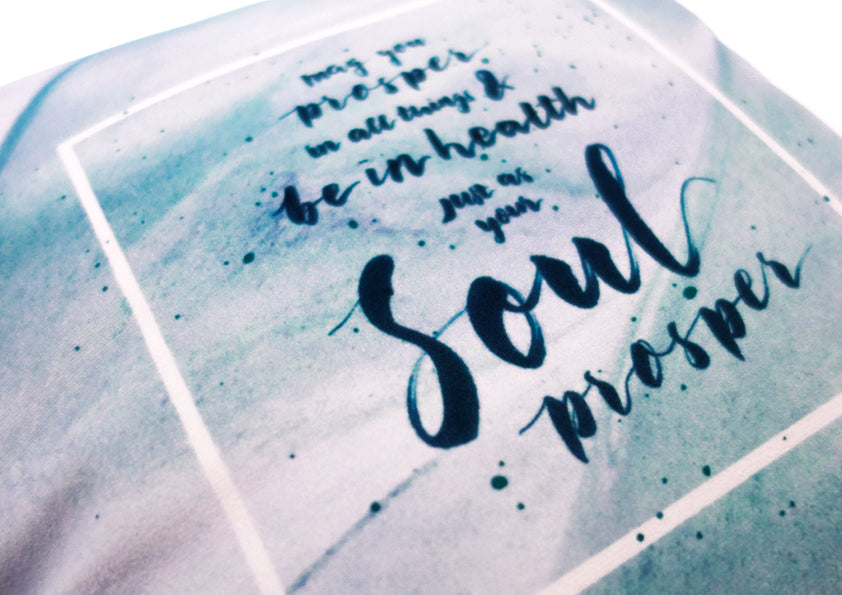 may you
prosper
in all things &
be in health
just as
your
Soul
prosper